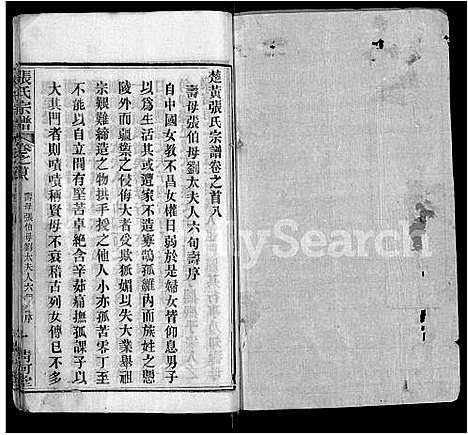 楚黃張氏宗譜卷之首八
壽母張伯母劉太夫人六旬壽序
自中國女教不昌女權日弱於是婦女皆仰息男子
以爲生活其或遭家不造寡鵠孤雛內而族姓之憑
陵外而疆鄰之侵侮大者受欺狐媚以失大業舉祖
宗艱難締造之物拱手授之他人小亦孤苦零丁至
不能以自立間有堅苦卓絶含辛茹痛撫孤課子以
大其門者則嘖嘖稱賢母不衰稽古列女傳已不多
張氏宗譜 卷之首
壽母張伯母劉太夫人六旬壽序
一
清河堂
MySearch